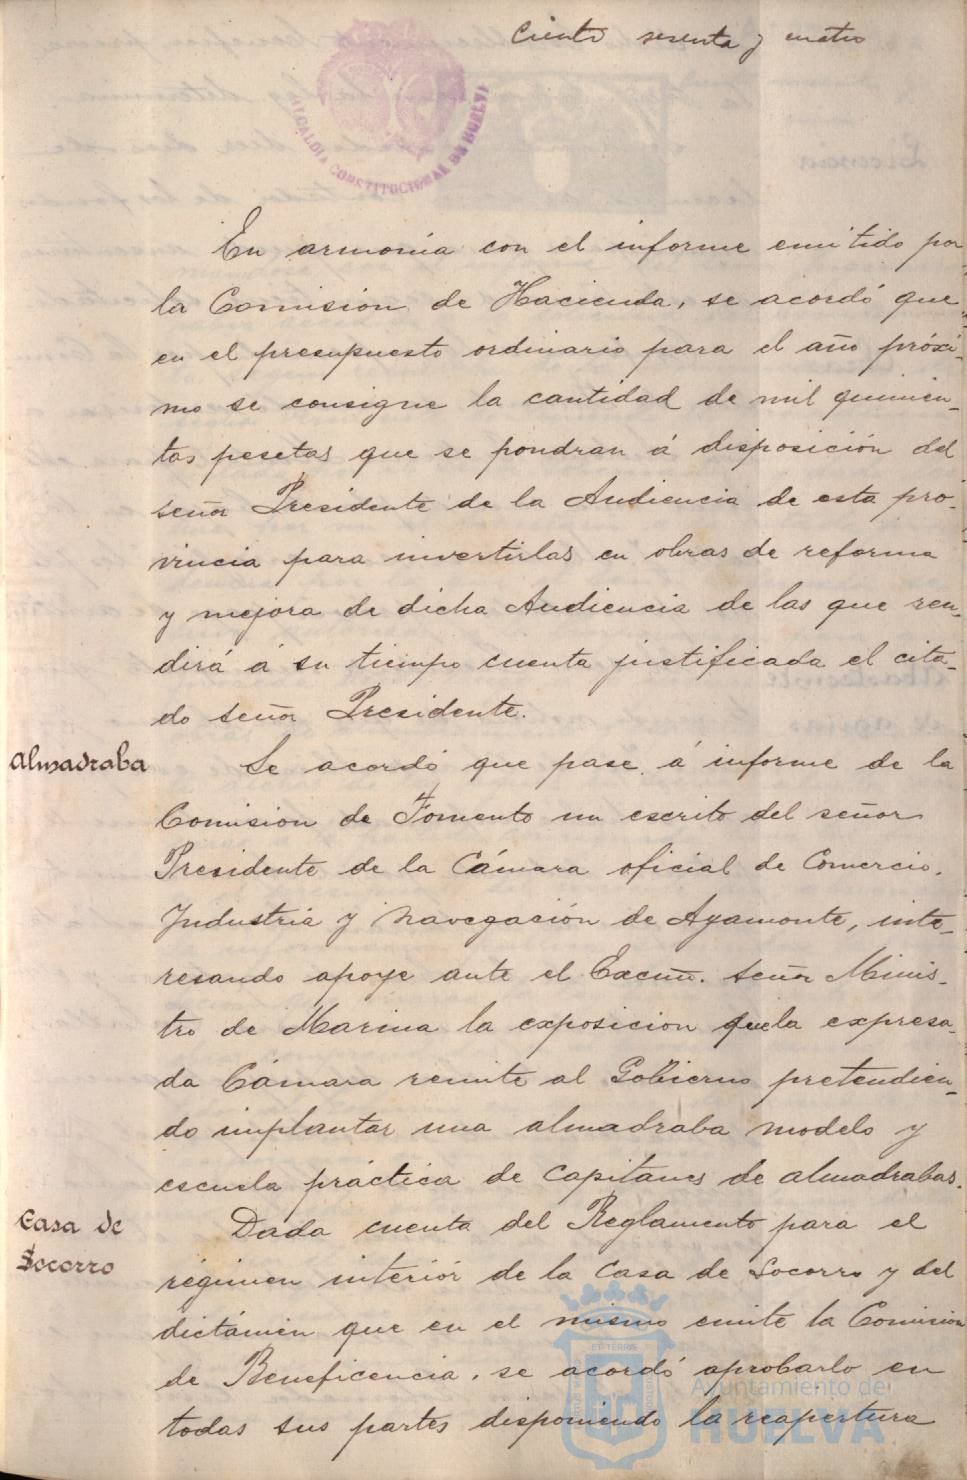 Ciento sesenta y cuatro
ALCALDIA CONSTITUCIONAL DE HUELVA
En armonía con el informe emitido por
la Comisión de Hacienda, se acordó que
en el presupuesto ordinario para el año próxi-
mo se consigne la cantidad de mil quinien-
tas pesetas que se pondran á disposición del
señor Presidente de la Audiencia de esta pro-
vincia para invertirlas en obras de reforma
y mejora de dicha Audiencia de las que ren-
dirá á su tiempo cuenta justificada el cita-
do señor Presidente.
Almadraba
Se acordó que pase á informe de la
Comision de Fomento un escrito del señor
Presidente de la Cámara oficial de Comercio,
Industria y navegación de Ayamonte, inte-
resando apoye ante el Excmo. señor Minis-
tro de Marina la exposicion que la expresa-
da Cámara remite al Gobierno pretendien-
do implantar una almadraba modelo y
escuela práctica de capitanes de almadrabas.
Casa de
Socorro
Dada cuenta del Reglamento para el
régimen interiór de la Casa de Socorro y del
dictámen que en el mismo emite la Comision
de Beneficencia, se acordó aprobarlo en
todas sus partes disponiendo la reapertura
Ayuntamiento de
HUELVA